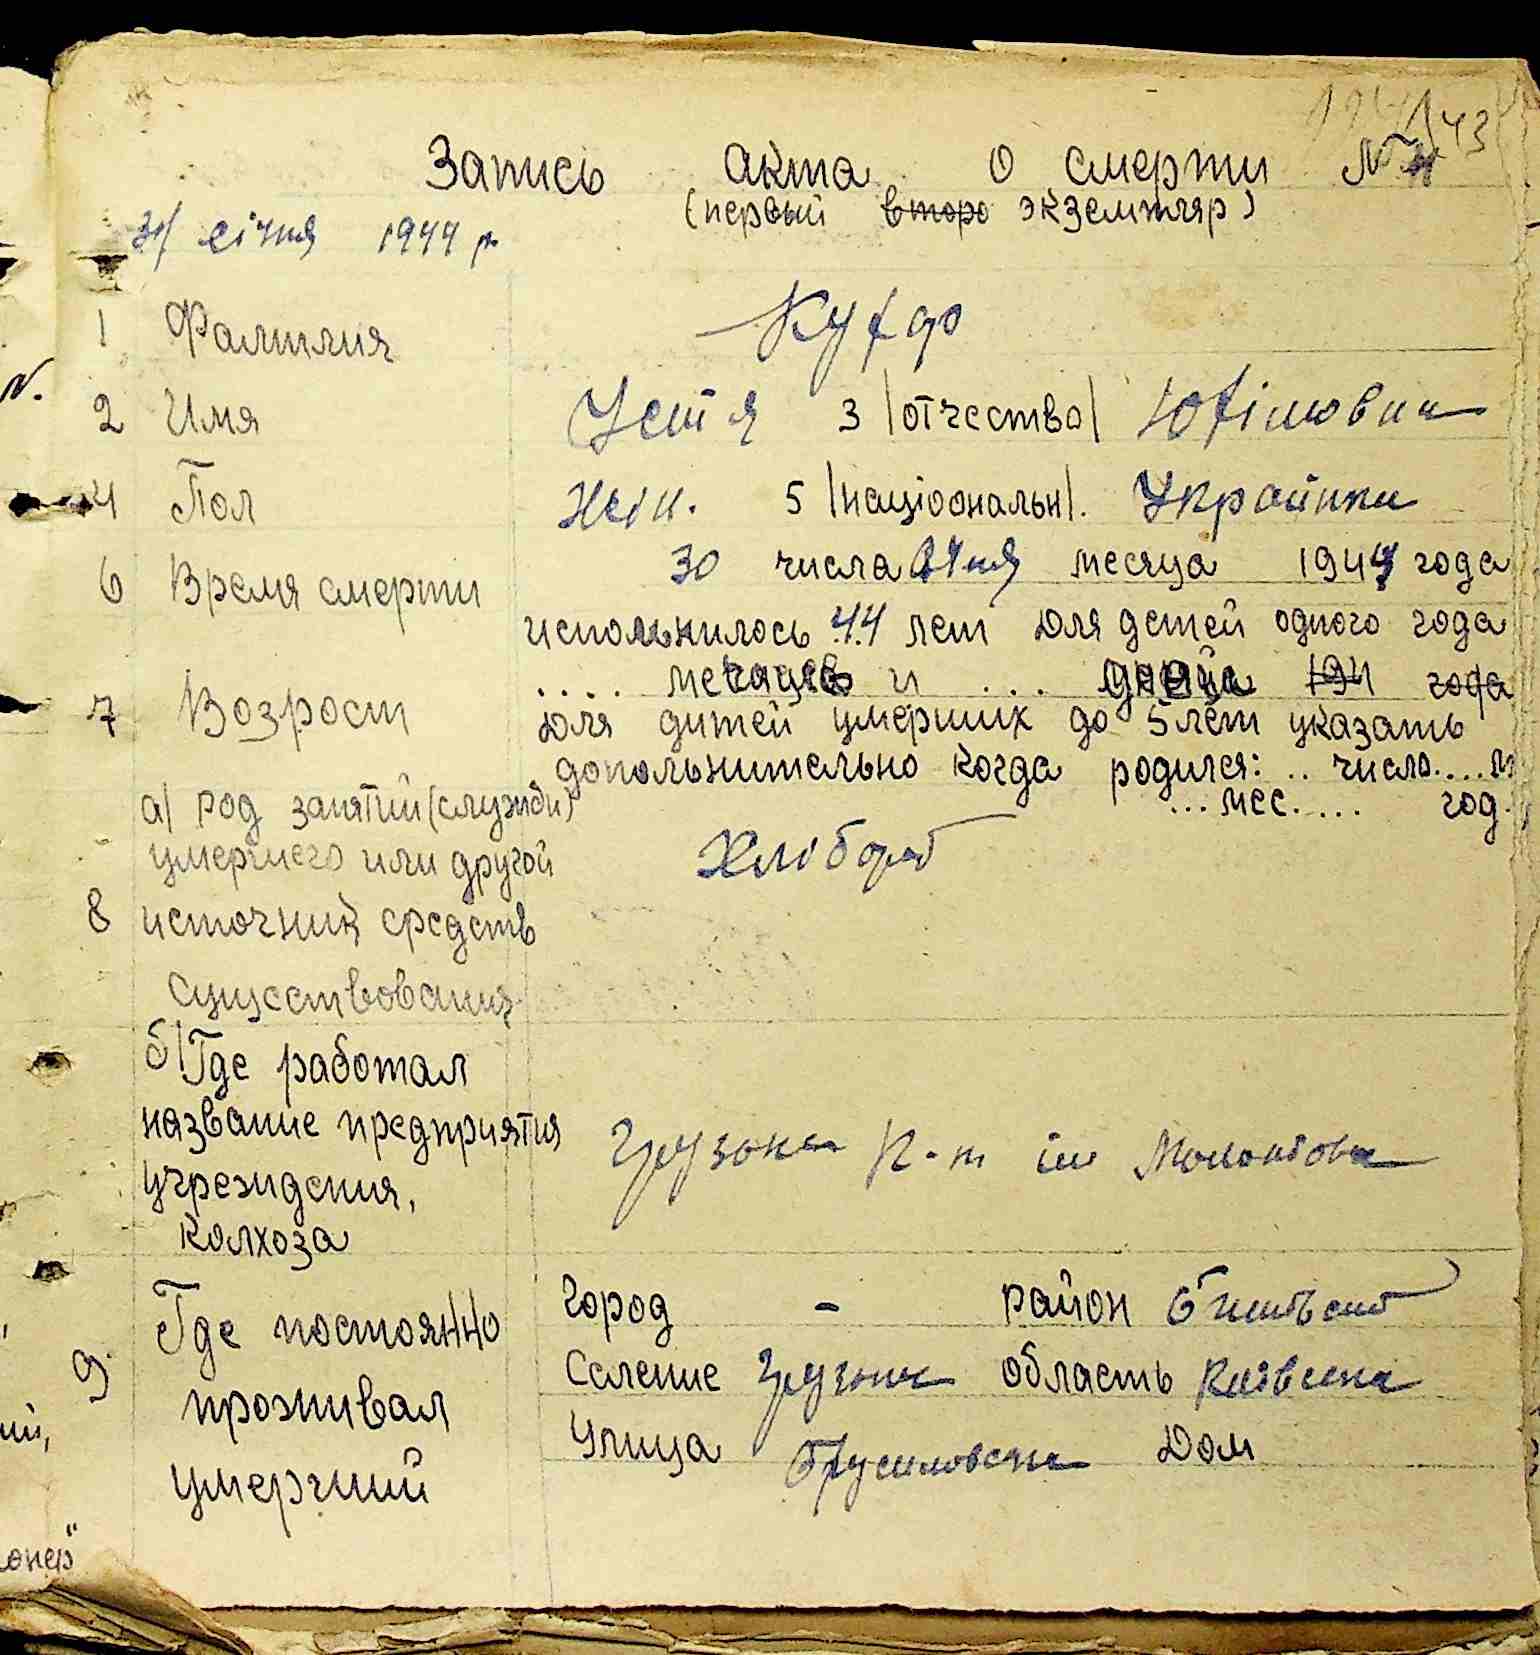 43
Запись акта о смерти №
(первый второ экземпляр)
31 січня 1944 р.
1 Фамилия
2 Имя Устя 3 |отчество| Юхімовна
4 Пол Жін. 5 |націоональн|. Українка
6 Время смерти 30 числа січня месяца 1944 года
испольнилось 44 лет Для детей одного года
.... месяцев и ... года
7 Возраст Для дитей умерших до 5 лет указать
дополънительно когда родился: .. число....
...мес.... год.
а| род занятий (служби)
умершего или другой Хлібороб
8 источник средств
существования
б| Где работал
название предприятия
учреждения, Грузьке к-п ім
колхоза
9. Где постоянно Город - район
проживал Селение Грузьке область Київська
умерший Улица Брусиловська Дом
N.
онер"